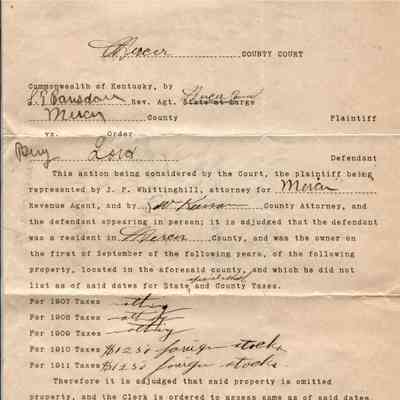 Mercer COUNTY COURT
Commonwealth of Kentucky, by
Rev. Agt. State at Large Mercer
Mercer County Plaintiff
vs. Order
Lord Defendant
This action being considered by the Court, the plaintiff being
represented by J. P. Whittinghill, attorney for Mercer
Revenue Agent, and by County Attorney, and
the defendant appearing in person; it is adjudged that the defendant
was a resident in Mercer County, and was the owner on
the first of September of the following years, of the following
property, located in the aforesaid county, and which he did not
list as of said dates for State, and County Taxes.
For 1907 Taxes nothing
For 1908 Taxes nothing
For 1909 Taxes nothing
For 1910 Taxes $1250 foreign stocks
For 1911 Taxes $1250 foreign stocks.
Therefore it is adjudged that said property is omitted
property, and the Clerk is ordered to assess same as of said dates